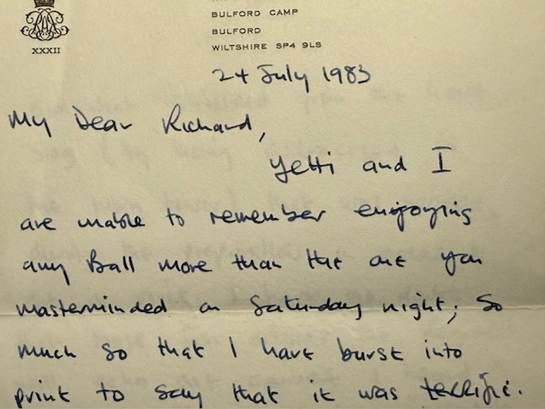 XXXII
BULFORD CAMP
BULFORD
WILTSHIRE SP4 9LS
24 July 1983
My Dear Richard,
Yetti and I
are unable to remember enjoying
any Ball more than the one you
masterminded on Saturday night; so
much so that I have burst into
print to say that it was terrific.